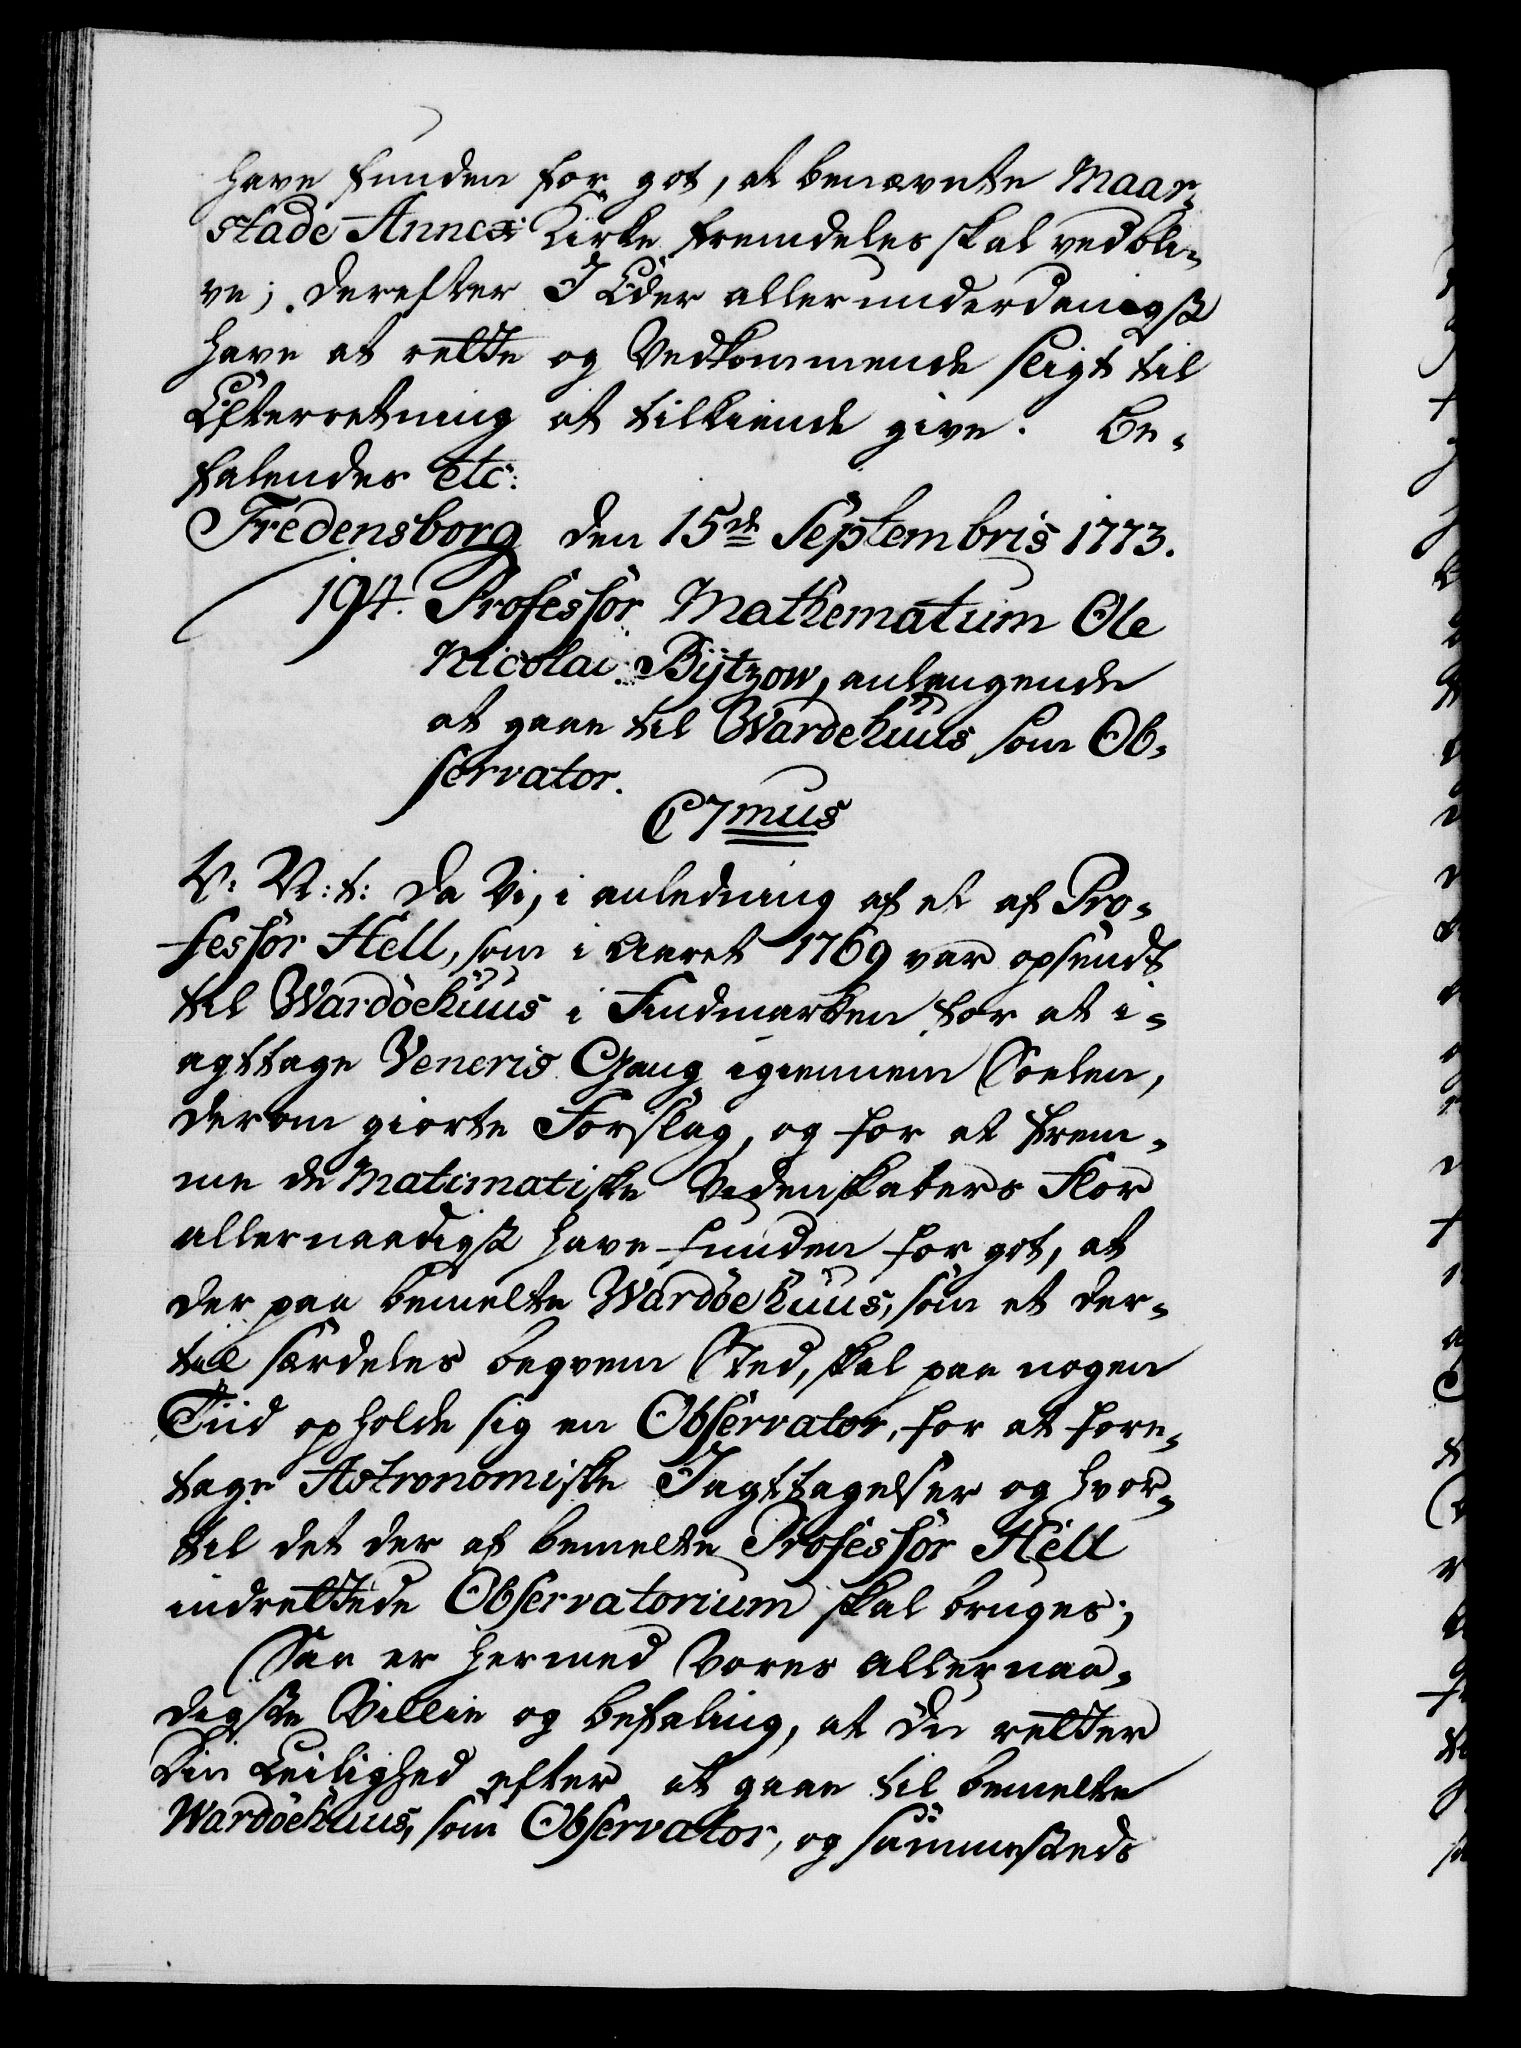 have funden for got, at benævnte Maar-
stade Annex Kirke fremdeles skal vedbli-
ve; derefter I Eder allerunderdanigst
have at rette og Vedkommende sligt til
Efterretning at tilkiende give. Be-
falendes etc:
Fredensborg den 15de Septembris 1773.
194. Professor Mathematum Ole
Nicolai Bÿtzow, anlangende
at gaae til Wardehuus som Ob-
servator.
C7mus
V: V: t: Da Vi, i anledning af et af Pro-
fessor Hell, som i Aaret 1769 var opsendt
til Wardøehuus i Findmarken for at i-
agttage Veneris Gang igiennem Soelen,
derom giorte Forslag, og for at frem-
me de Matimatiske Videnskabers Flor
allernaadigst have funden for got, at
der paa bemelte Wardøehuus, som et der-
til særdeles beqvem Sted, skal paa nogen
Tiid opholde sig en Observator, for at fore-
tage Astronomiske Iagttagelser og hvor-
til det der af bemelte Professor Hell
indrettede Observatorium skal bruges;
Saa er hermed Vores allernaa-
digste Villie og befaling, at du retter
Din Leilighed efter at gaae til bemelte
Wardøehuus, som Observator, og sammesteds